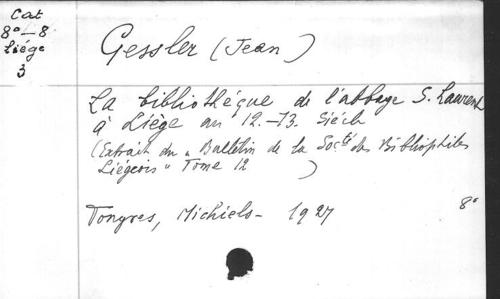 Cat
8°-8
Liége
3
Gessler (Jean)
La bibliothéque de l'abbaye S. Laurent
à Liège au 12.-13. Siécle
(Extrait du „Bulletin de la Socté des Bibliophiles
Liégeois" Tome 12 )
Tongres, Michiels - 1927 8°